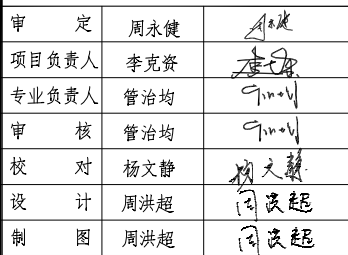 审 定 周永健
项目负责人 李克资 李克资
专业负责人 管治均
审 核 管治均
校 对 杨文静 杨文静
设 计 周洪超 周洪超
制 图 周洪超 周洪超